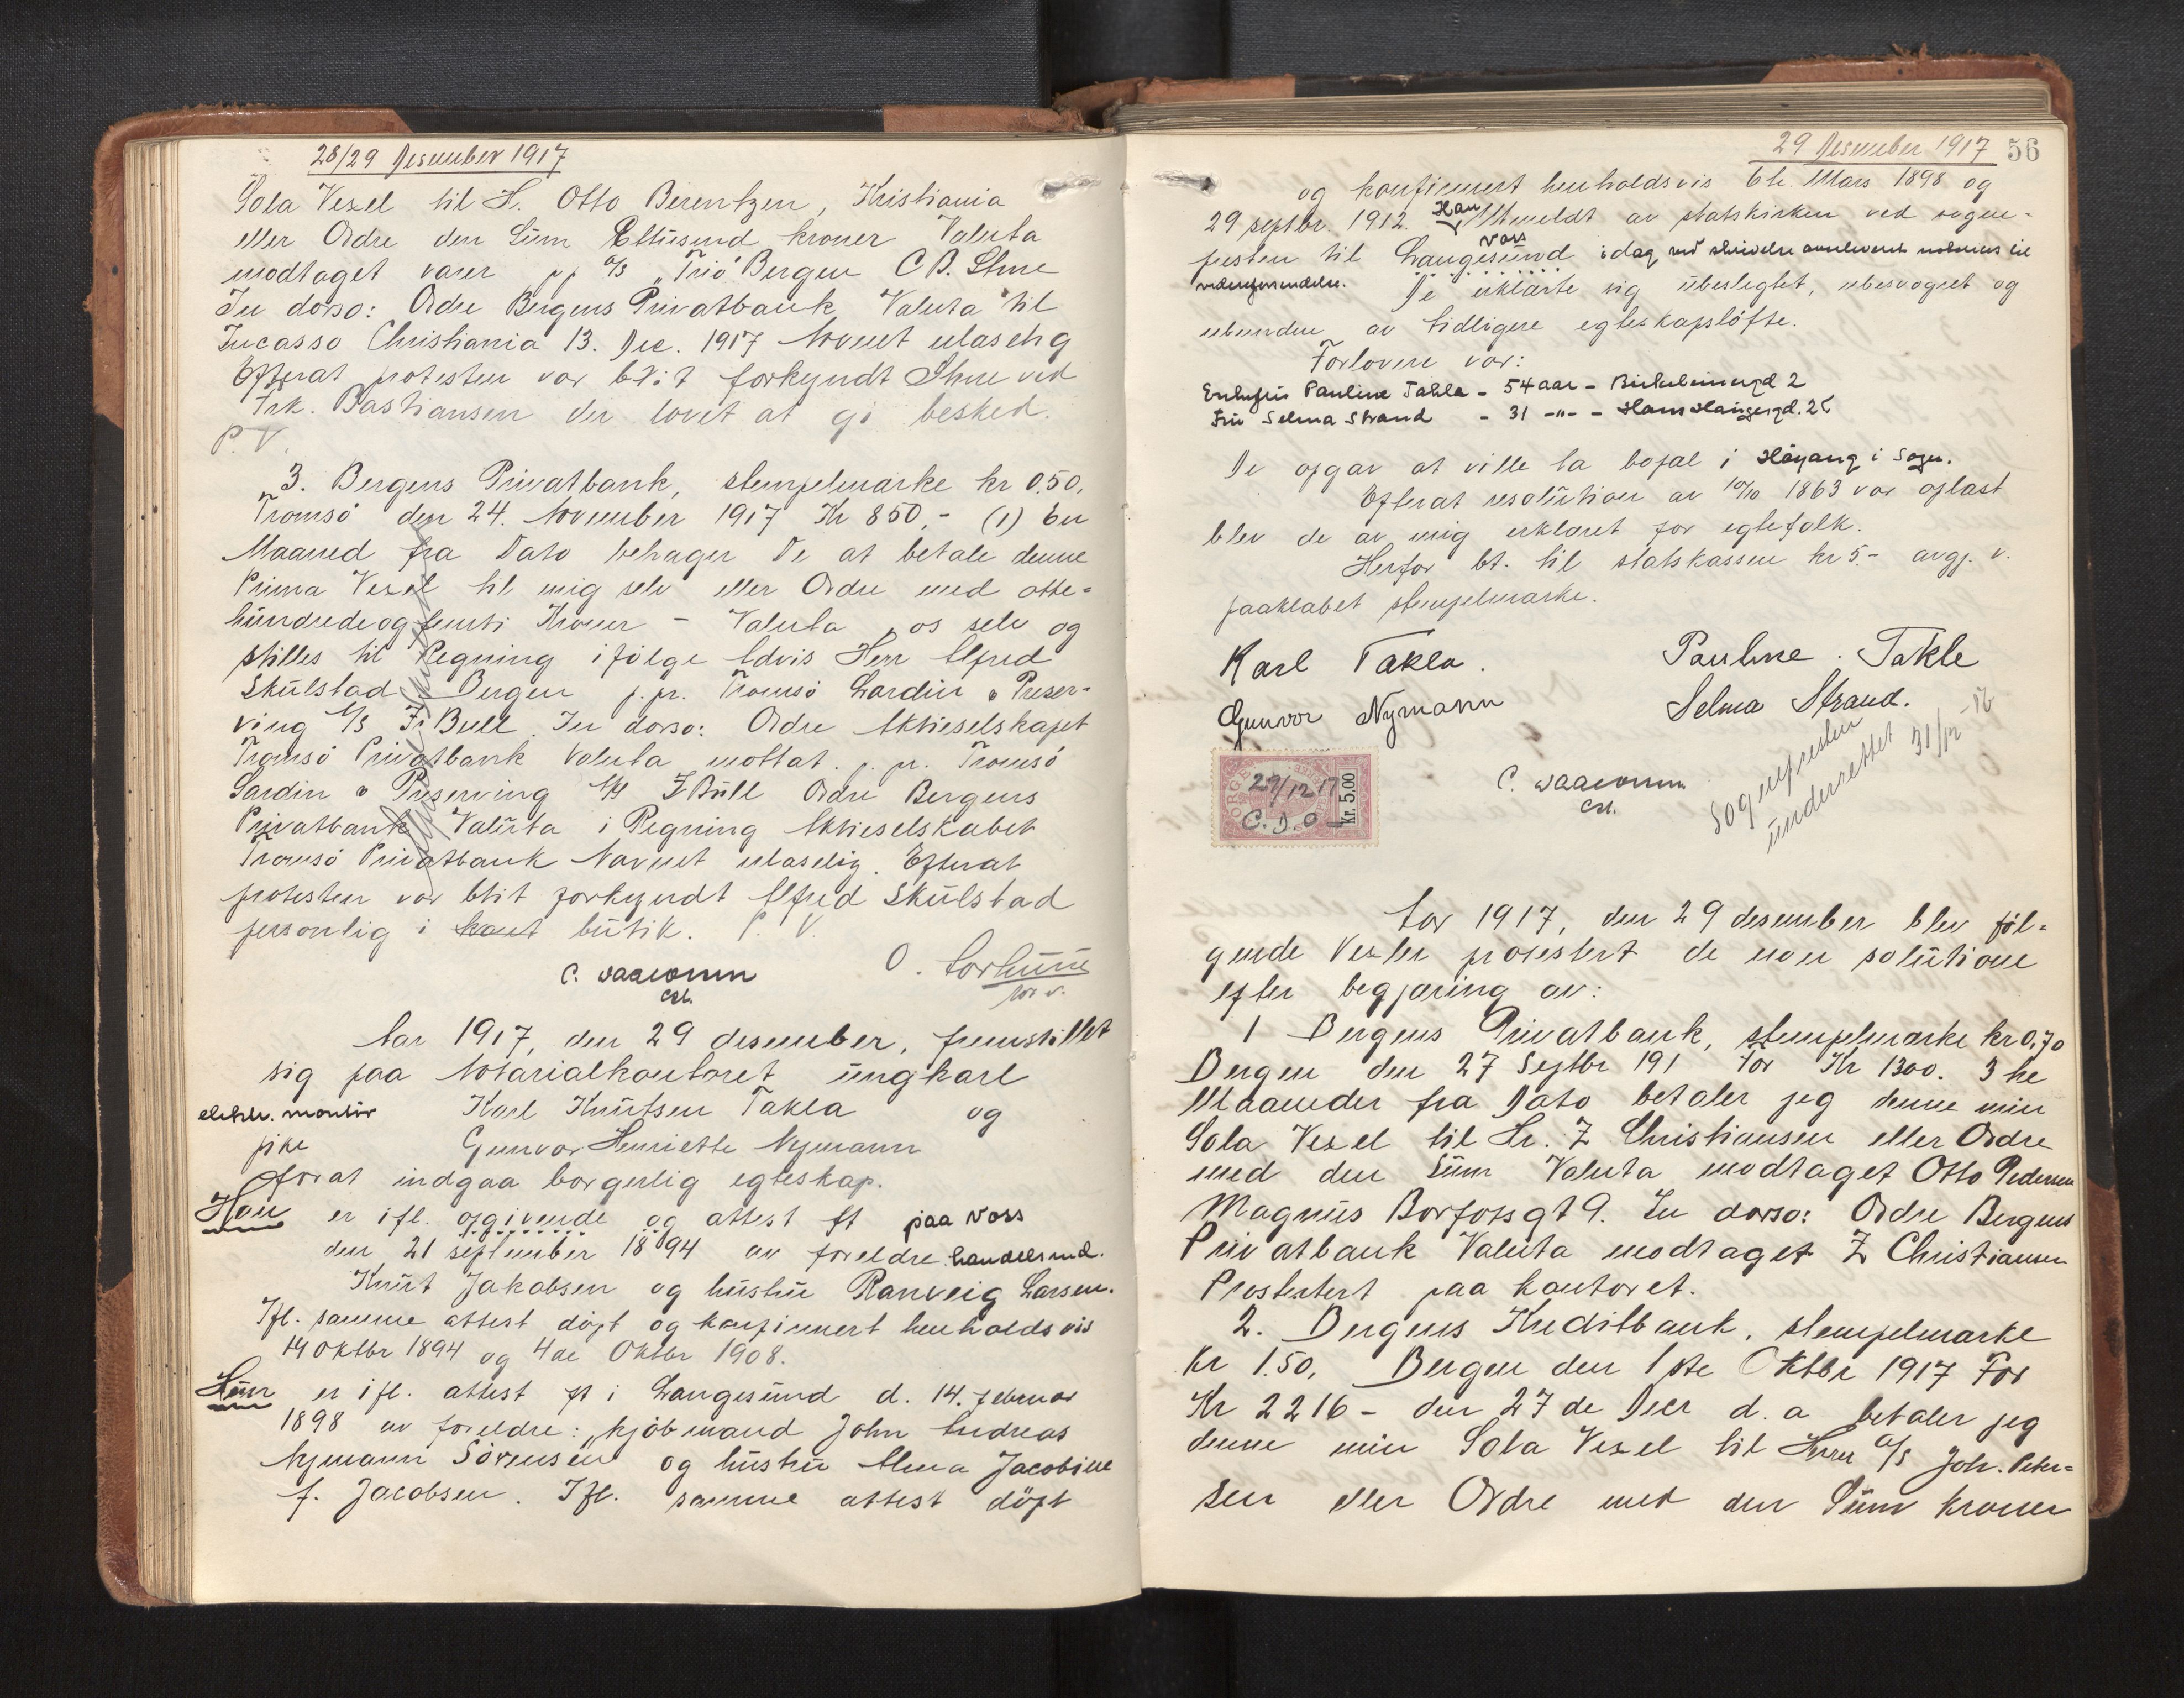 28/29 Desember 1917
Sola Vexel til H. Otto Berentzen, Kristiania
eller Ordre den Sum Ettusend kroner Valuta
modtaget varer pp A/S "Trio" Bergen C B. Stme
In dorso: Ordre Bergens Privatbank Valuta til
Incasso Christiania 13. Dec. 1917 Navnet ulæselig
Efterat protesten var blit forkyndt Stme ved
Frk. Bastiansen der lovet at gi besked.
P. V.
3. Bergens Privatbank, stempelmarke kr 0.50.
Tromsö den 24. November 1917 Kr 850,- (1) En
Maaned fra Dato behager De at betale denne
Prima Vexel til mig selv eller Ordre med otte=
hundredeogfemti Kroner - Valuta os selv og
stilles til Regning ifölge Advis Herr Alfred
Skulstad Bergen p. pr. Tromsö Sardin & Preser-
ving A/S J. Bull. In dorso: Ordre Aktieselskapet
Tromsö Privatbank Valuta mottat. p. pr. Tromsö
Sardin & Preserving A/S J Bull Ordre Bergens
Privatbank Valuta i Regning Aktieselskabet
Tromsö Privatbank Navnet ulæselig. Efterat
protesten var blit forkyndt Alfred Skulstad
personlig i kont butik. P. V.
C. Waaeomm
cst.
Aar 1917, den 29 desember, fremstillet
sig paa Notarialkontoret ungkarl
elektr. montör Karl Knutsen Takla og
pike Gunvor Henriette Nymann
forat indgaa borgerlig egteskap.
Han er ifl. opgivende og attest ft paa Voss
den 21 september 1894 av foreldre handelsmd.
Knut Jakobsen og hustru Ranveig Larsen.
Ifl. samme attest döpt og konfirmert henholdsvis
14 Oktbr 1894 og 4de Oktbr 1908.
Hun er ifl. attest ft i Langesund d. 14. februar
1898 av foreldre: kjöbmand John Andreas
Nymann Sörensen og hustru Alma Jacobine
f. Jacobsen. Ifl. samme attest döpt
29 Desember 1917 56
og konfirmert henholdsvis 6te Mars 1898 og
29 septbr. 1912. Han Utmeldt av statskirken ved sogne-
presten til Langesund Voss idag ved skrivelse avleveret notarius til
videreforsendelse. De erklærte sig ubeslegtet, ubesvogret og
ubunden av tidligere egteskapslöfte.
Forlovere var:
Enkefru Pauline Takle - 54 aar - Birkebeinergd 2
Fru Selma Strand - 31 -"- - Hans Haugesgd. 25
De opgav at ville ta bopæl i Höyang i Sogn.
Efterat resolution av 10/10 1863 var oplæst
blev de av mig erklæret for egtefolk.
Herfor bt. til statskassen kr 5.- avgj. v.
paaklæbet stempelmærke.
Karl Takla. Pauline Takle
Gunvor Nymann Selma Strand.
29/12 17
Kr. 5.00
C. Waaeomm
cst.
Sognepresten
underrettet 31/12 - 17
Aar 1917, den 29 desember blev föl-
gende Vexler protestert de non solutione
efter begjæring av:
1 Bergens Privatbank, stempelmerke kr 0,70
Bergen den 27 Septbr 191 For Kr 1300. 3 tre
Maaneder fra Dato betaler jeg denne min
Sola Vexel til Hr. Z Christiansen eller Ordre
med den Sum Valuta modtaget Otto Pedersen
Magnus Barfotsgt 9. In dorso: Ordre Bergens
Privatbank Valuta modtaget Z Christiansen
Prostestert paa kontoret.
2. Bergens Kreditbank, stempelmarke
Kr 1.50, Bergen den 1ste Oktbr 1917 For
Kr 2216 - den 27 de Decr d. a betaler jeg
denne min Sola Vexel til Herrer A/S Joh. Peter=
sen eller Ordre med den Sum Kroner